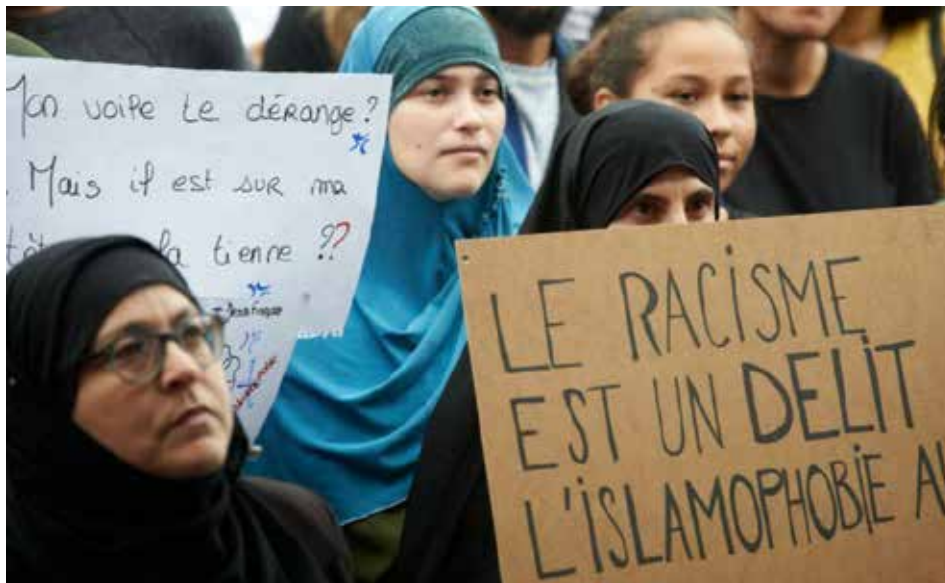 Mon voile te dérange ?
Mais il est sur ma
la tienne ??
LE RACISME
EST UN DELIT
L'ISLAMOPHOBIE A